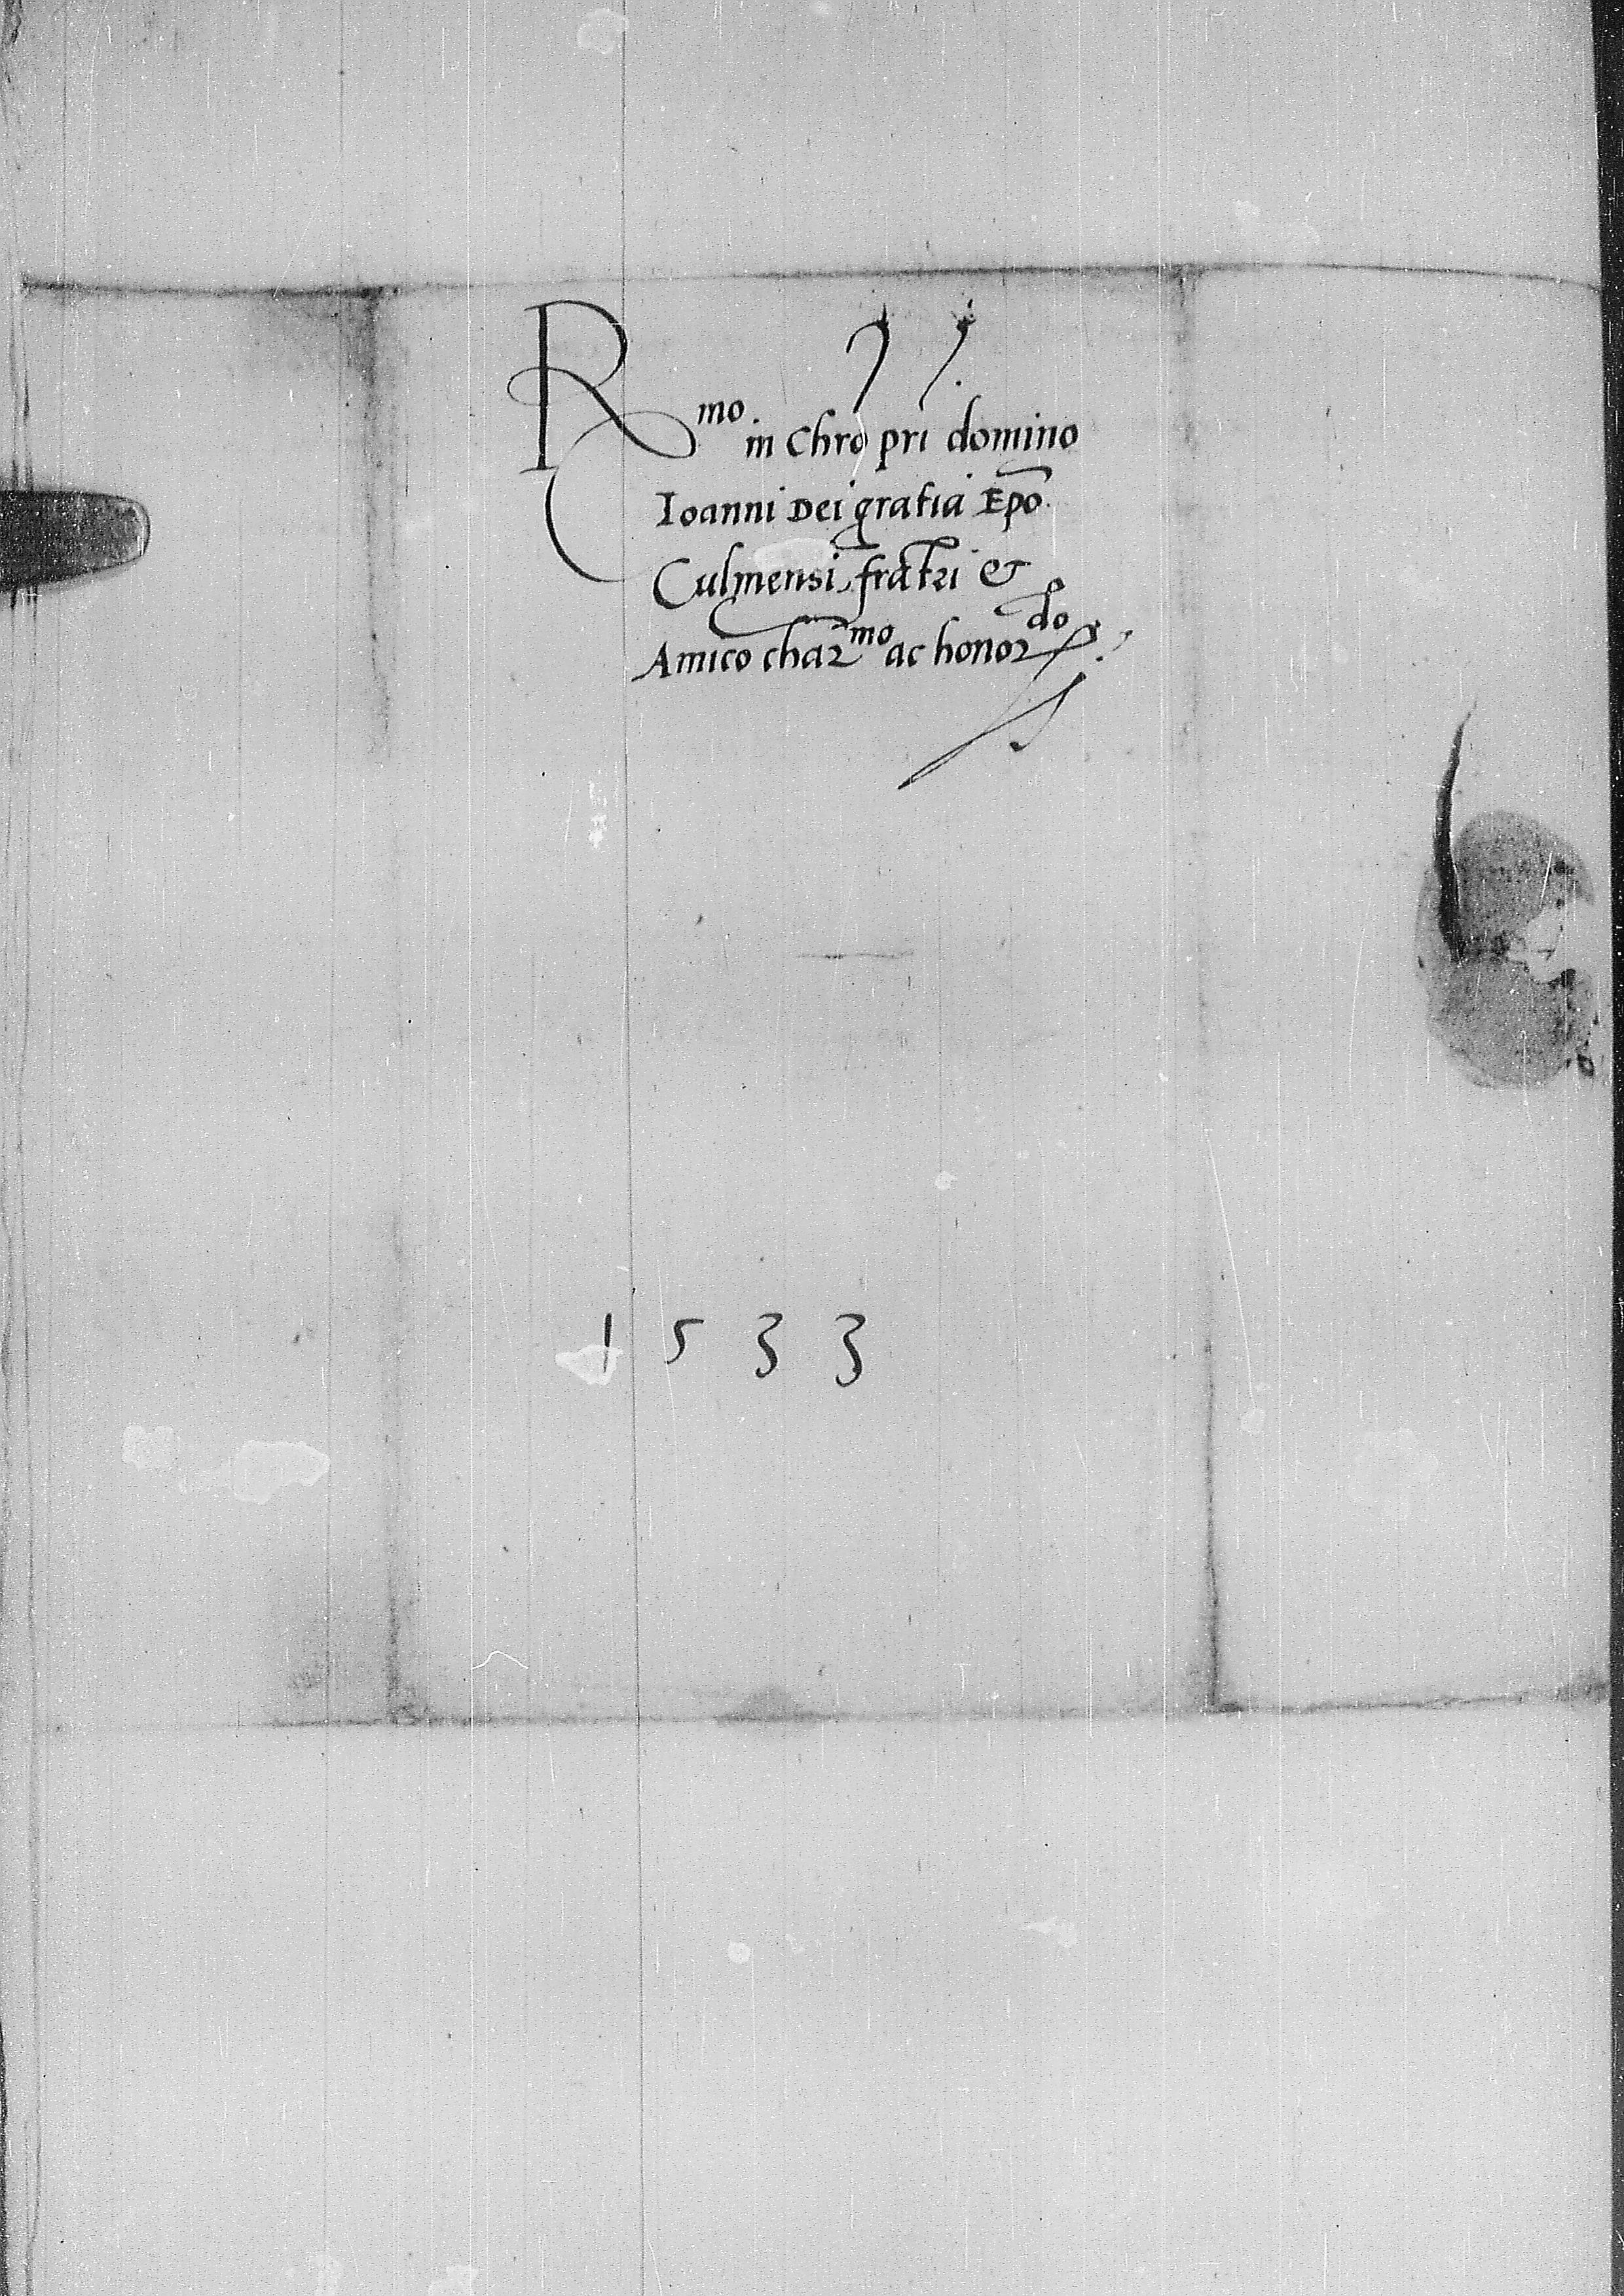 Rmo in Chro pri domino
Ioanni Dei gratia Epo.
Culmensi, fratri &
Amico charmo ac honordo
1533